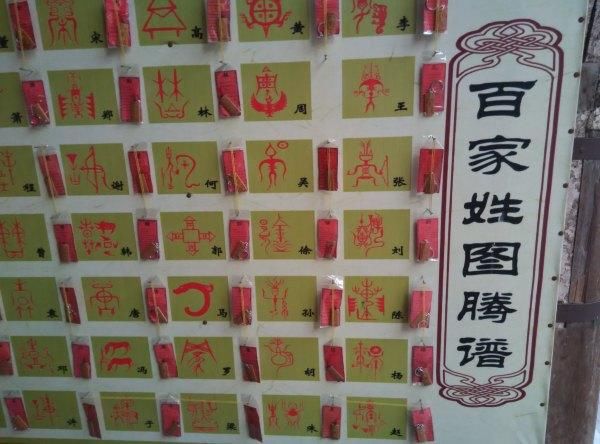 百家姓图腾谱
李
黄
高
宋
董
王
周
林
郑
萧
张
吴
何
谢
程
刘
徐
郭
韩
曾
陈
孙
马
唐
袁
杨
胡
罗
冯
邓
赵
朱
梁
于
许